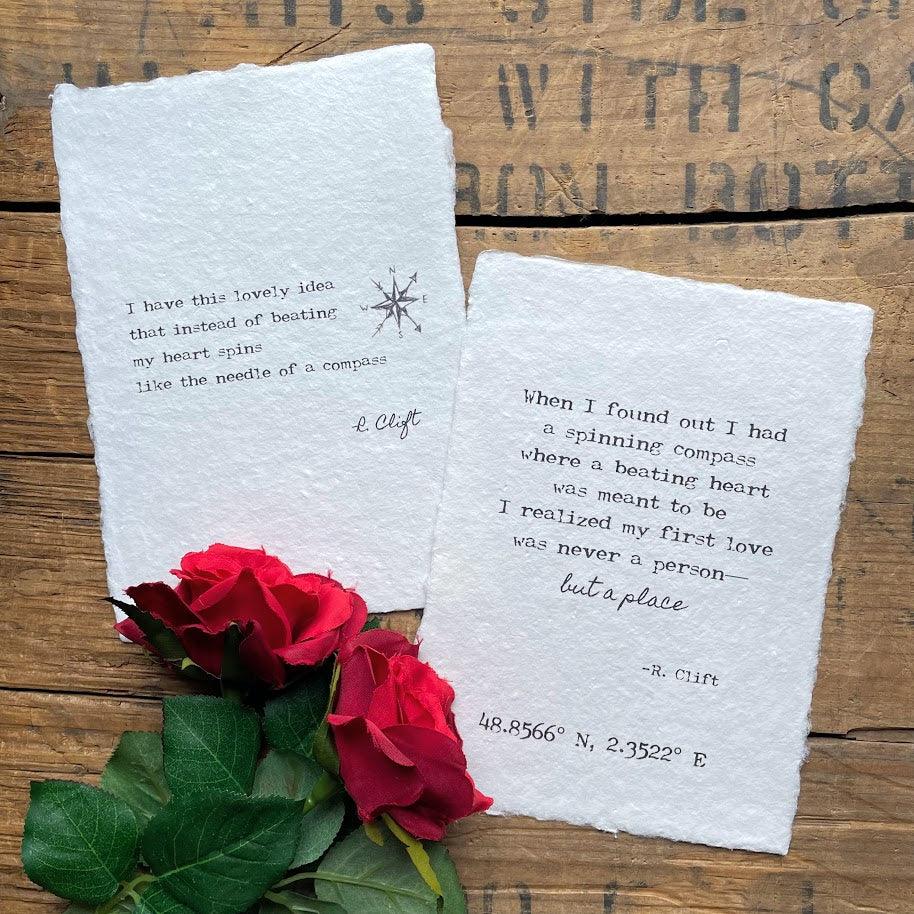 WITH
BOX
I have this lovely idea
that instead of beating
my heart spins
like the needle of a compass
N
W E
S
R. Clift
When I found out I had
a spinning compass
where a beating heart
was meant to be
I realized my first love
was never a person—
but a place
-R. Clift
48.8566° N, 2.3522° E